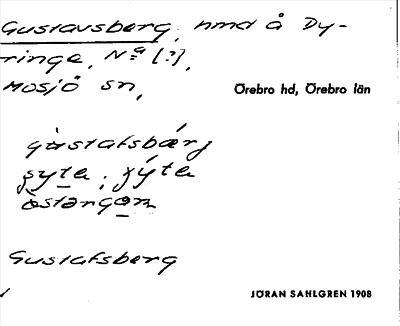 Gustavsberg, nmd å Dy-
ringe, Nᵒ [?],
Mosjö sn,
Örebro hd, Örebro län
gùstafsbǽrj
gyte; jýta
òstərgəm
Gustafsberg
JÖRAN SAHLGREN 1908